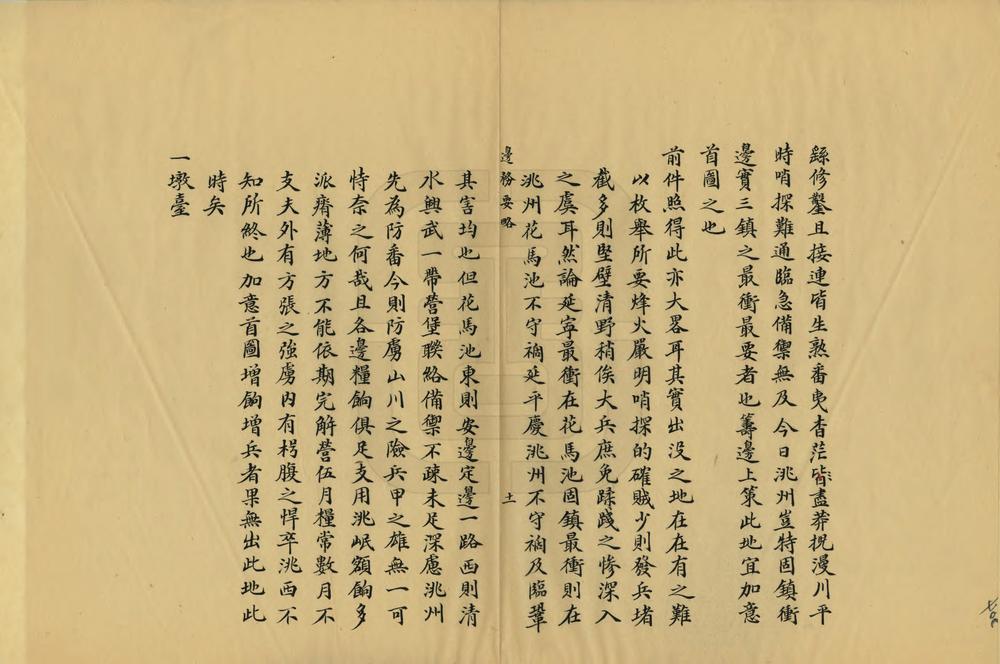 繇修鑿且接連皆生熟番曵杳茫皆盡莽挽漫川平
時哨探難通臨急備禦無及今日洮州豈特固鎮衝
邊實三鎮之最衝最要者也籌邊上策此地宜加意
首圖之也
前件照得此亦大畧耳其實出没之地在在有之難
以枚舉所要烽火嚴明哨探的確賊少則發兵堵
截多則堅壁清野稍俟大兵庶免蹂踐之慘深入
之虞耳然論延寧最衝在花馬池固鎮最衝則在
洮州花馬池不守禍延平慶洮州不守禍及臨鞏
邊務要略 土
其害均也但花馬池東則安邊定邊一路西則清
水興武一帶營堡聯絡備禦不疎未足深慮洮州
先為防番今則防虜山川之險兵甲之雄無一可
恃奈之何哉且各邊糧餉俱足支用洮岷額餉多
派瘠薄地方不能依期完解營伍月糧常數月不
支夫外有方張之強虜內有枵腹之悍卒洮西不
知所終也加意首圖增餉增兵者果無出此地此
時矣
一墩臺